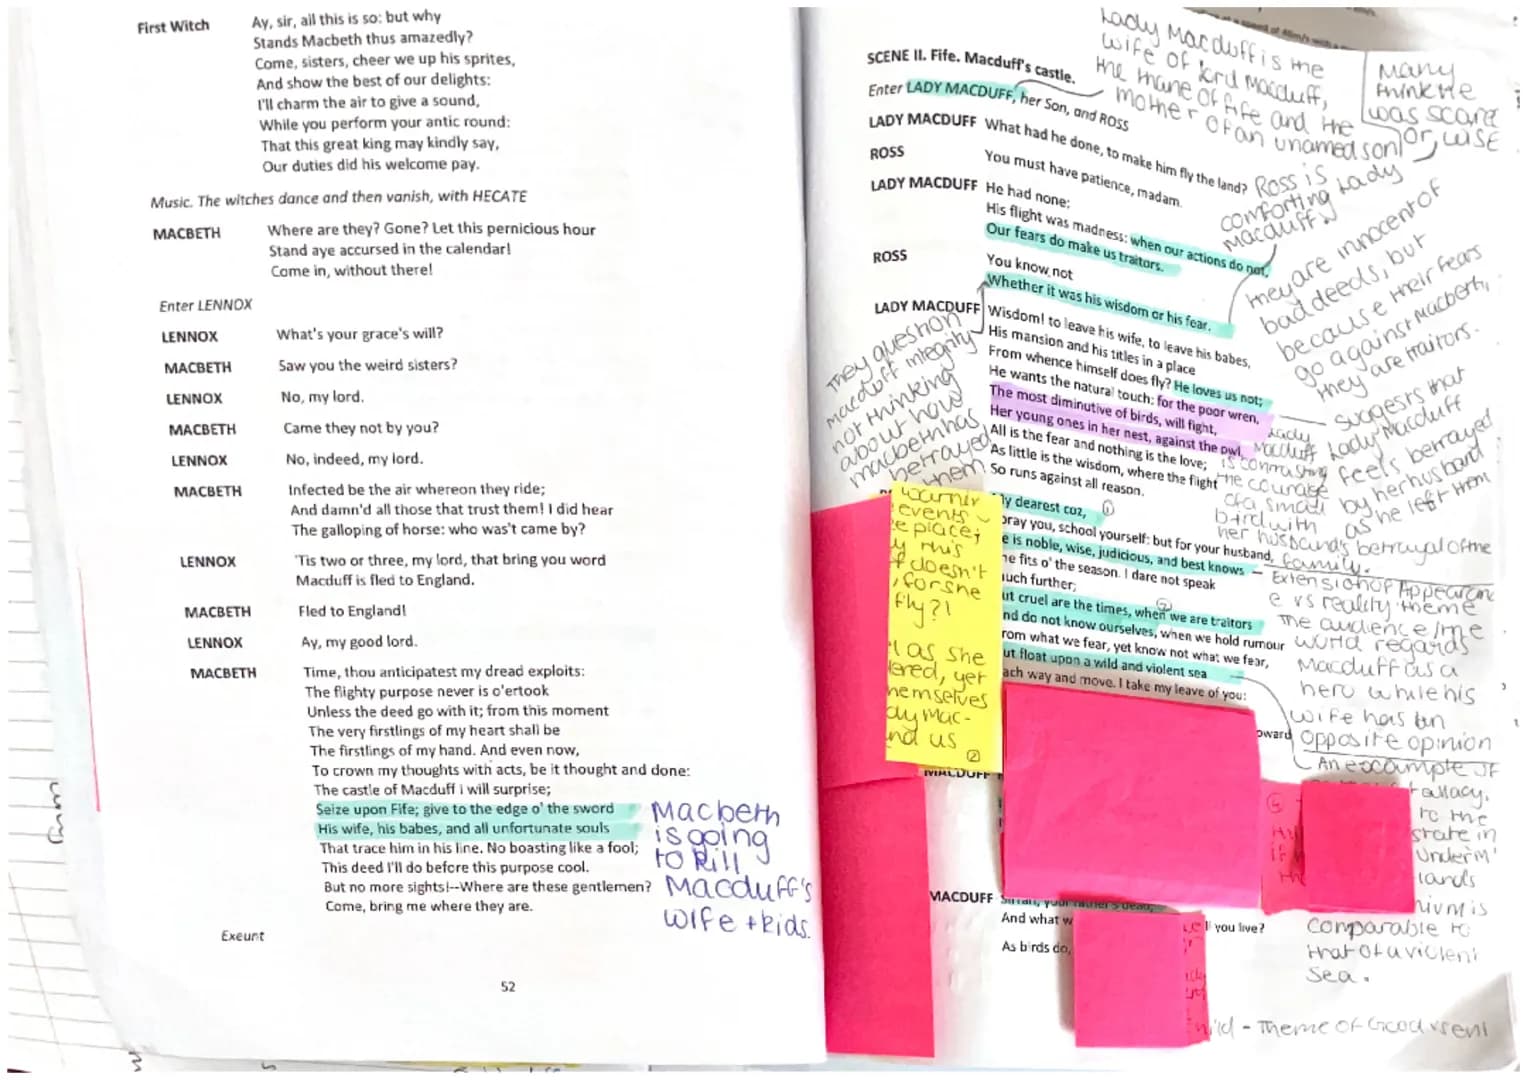 First Witch Ay, sir, all this is so: but why
Stands Macbeth thus amazedly?
Come, sisters, cheer we up his sprites,
And show the best of our delights:
I'll charm the air to give a sound,
While you perform your antic round:
That this great king may kindly say,
Our duties did his welcome pay.
Music. The witches dance and then vanish, with HECATE
MACBETH Where are they? Gone? Let this pernicious hour
Stand aye accursed in the calendar!
Come in, without there!
Enter LENNOX
LENNOX What's your grace's will?
MACBETH Saw you the weird sisters?
LENNOX No, my lord.
MACBETH Came they not by you?
LENNOX No, indeed, my lord.
MACBETH Infected be the air whereon they ride;
And damn'd all those that trust them! I did hear
The galloping of horse: who was't came by?
LENNOX 'Tis two or three, my lord, that bring you word
Macduff is fled to England.
MACBETH Fled to England!
LENNOX Ay, my good lord.
MACBETH Time, thou anticipatest my dread exploits:
The flighty purpose never is o'ertook
Unless the deed go with it; from this moment
The very firstlings of my heart shall be
The firstlings of my hand. And even now,
To crown my thoughts with acts, be it thought and done:
The castle of Macduff I will surprise;
Seize upon Fife; give to the edge o' the sword
His wife, his babes, and all unfortunate souls
That trace him in his line. No boasting like a fool;
This deed I'll do before this purpose cool.
But no more sights!--Where are these gentlemen?
Come, bring me where they are.
Exeunt
52
Macbeth
is going
to kill
Macduff's
wife + kids.
SCENE II. Fife. Macduff's castle.
Enter LADY MACDUFF, her Son, and ROSS
LADY MACDUFF What had he done, to make him fly the land?
ROSS You must have patience, madam.
LADY MACDUFF He had none:
His flight was madness: when our actions do not,
Our fears do make us traitors.
ROSS You know not
Whether it was his wisdom or his fear.
LADY MACDUFF Wisdom! to leave his wife, to leave his babes,
His mansion and his titles in a place
From whence himself does fly? He loves us not;
He wants the natural touch: for the poor wren,
The most diminutive of birds, will fight,
Her young ones in her nest, against the owl.
All is the fear and nothing is the love;
As little is the wisdom, where the flight
So runs against all reason.
My dearest coz, ①
pray you, school yourself: but for your husband,
e is noble, wise, judicious, and best knows
he fits o' the season. I dare not speak
uch further;
ut cruel are the times, when we are traitors
②
nd do not know ourselves, when we hold rumour
rom what we fear, yet know not what we fear,
ut float upon a wild and violent sea
ach way and move. I take my leave of you:
MACDUFF
MACDUFF Sirrah, your father's dead;
And what w l you live?
As birds do,
Lady Macduff is the
wife of lord Macduff,
the thane of fife and the
mother of an unamed son
Many
think he
was scared
or, wise
Ross is
comforting Lady
Macduff.
they are innocent of
bad deeds, but
because their fears
go against Macbeth,
they are traitors.
suggests that
Lady Macduff
feels betrayed
by her husband
as he left them
They question
macduff integrity
not thinking
about how
macbeth has
betrayed
them
Lady
Macduff
is contrasting
the courage
of a small
bird with
her husband's betrayal of the
family.
Extension of Appearanc
e vs reality theme
The audience/the
world regards
Macduff as a
hero while his
wife has an
opposite opinion
An example of
fallacy.
to the
state in
lands
is
comparable to
that of a violent
sea.
- Theme of Good vs evil
events
e place;
y this
f doesn't
, for she
fly?!
l as she
ered, yet
hemselves
dy Mac-
nd us
②